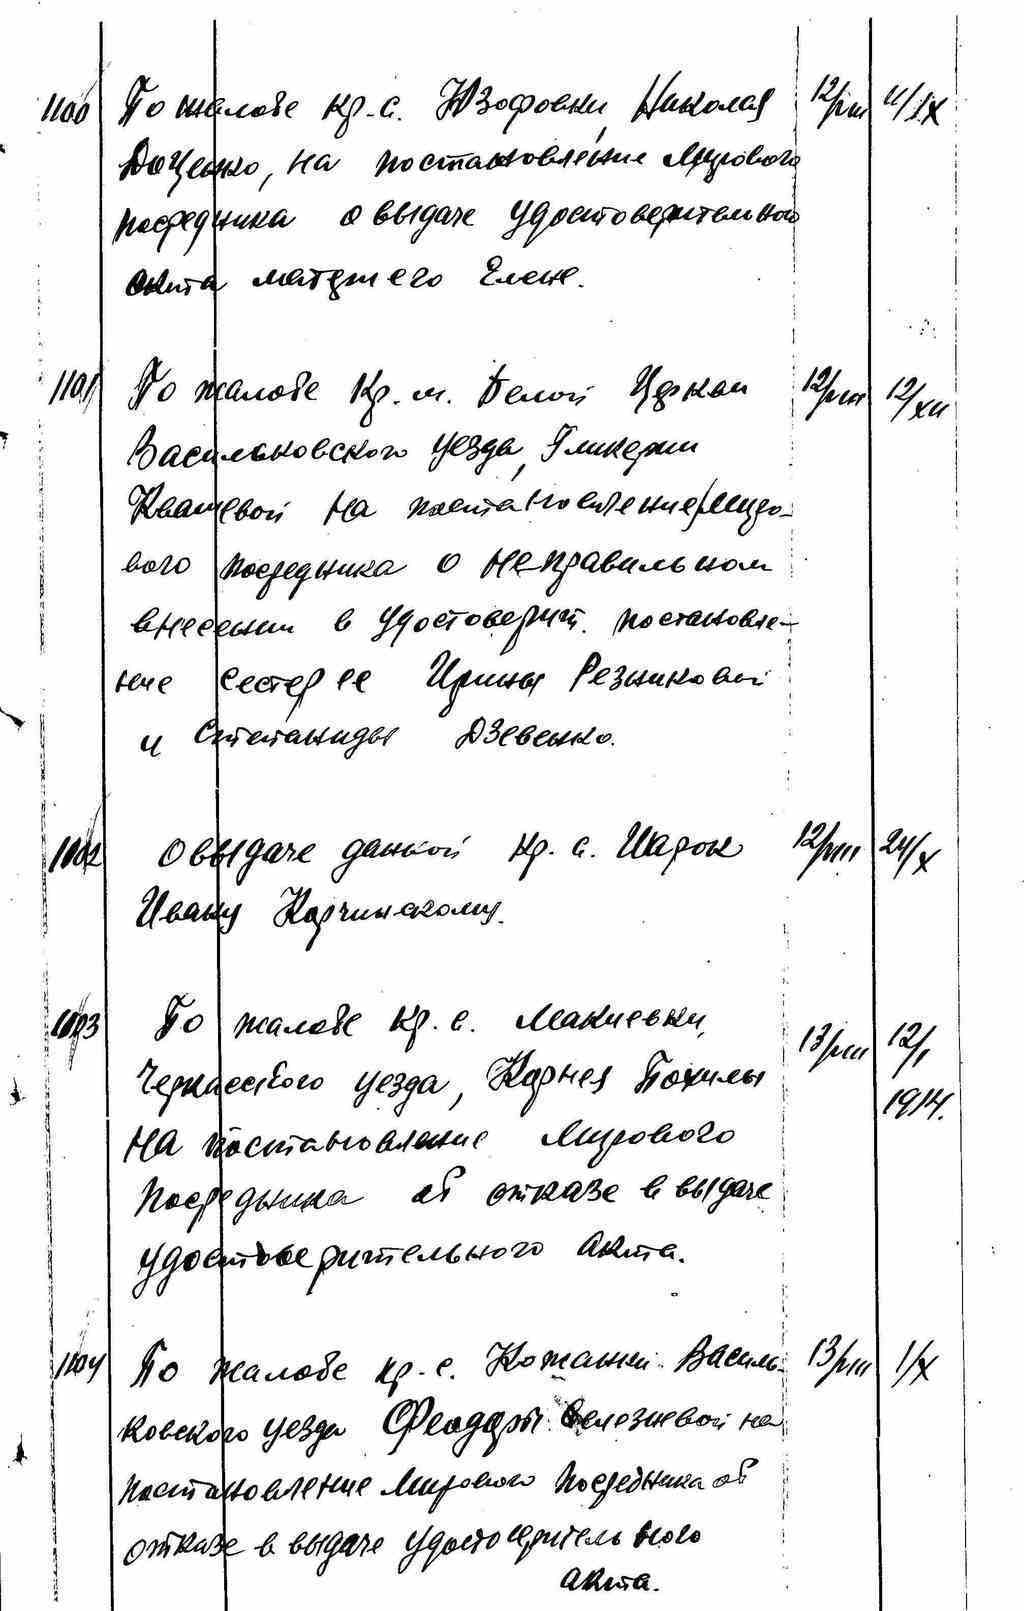 1100 По жалобе кр. с. Юзофовки, Николая 12/VIII 11/IX
Доценко, на постановление Мирового
посредника о выдаче удостоверительного
акта матери его Елене.
1101 По жалобе кр. м. Белой Церкви 12/VIII 12/XII
Васильковского уезда, Гликерии
Квашевой на постановление Миро-
вого посредника о неправильном
внесении в удостоверит. постановле-
ние сестер ее Ирины Резниковой
и Степаниды Дзевенко.
1102 О выдаче данной кр. с. Шарок 12/VIII 24/X
Ивану Корчинскому.
1103 По жалобе кр. с. Макиевки, 13/VIII 12/I
Черкасского уезда, Корнея Похилы 1914.
на постановление Мирового
посредника об отказе в выдаче
удостоверительного акта.
1104 По жалобе кр. с. Кожанки Василь- 13/VIII 1/X
ковского уезда Селезневой на
постановление Мирового Посредника об
отказе в выдаче удостоверительного
акта.